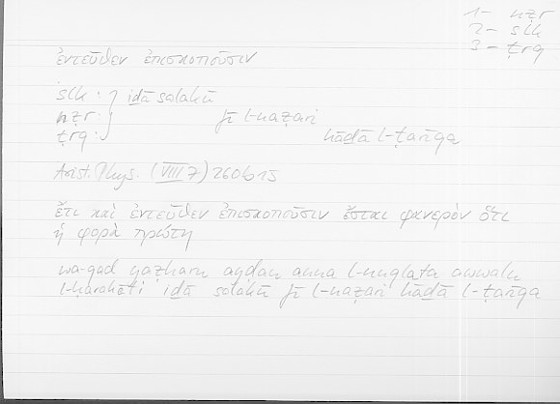 1 – nẓr
2 – slk
3 – ṭrq
ἐντεῦθεν ἐπισκοποῦσιν
slk : } iḏā salakū
nẓr : fī l-naẓari
ṭrq : hāḏā l-ṭarīqa
Arist. Phys. (VIII 7) 260b15
ἔτι καὶ ἐντεῦθεν ἐπισκοποῦσιν ἔσται φανερὸν ὅτι
ἡ φορὰ πρώτη
wa-qad yaẓharu ayḍan anna l-nuqlata awwalu
l-ḥarakāti iḏā salakū fī l-naẓari hāḏā l-ṭarīqa